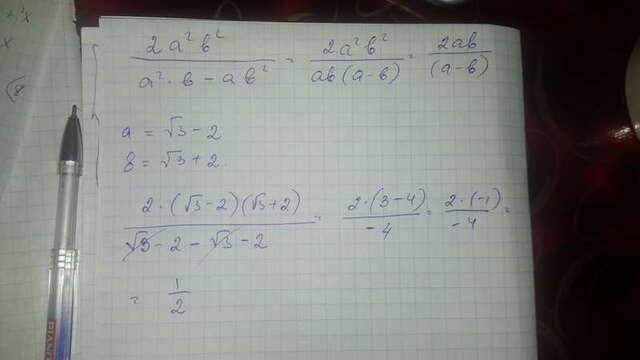 2a²b² / (a²·b − ab²) = 2a²b² / (ab(a−b)) = 2ab / (a−b)
a = √3 − 2
b = √3 + 2.
2·(√3−2)(√3+2) / (√3 − 2 − √3 − 2) = 2·(3−4) / −4 = 2·(−1) / −4 =
= 1/2